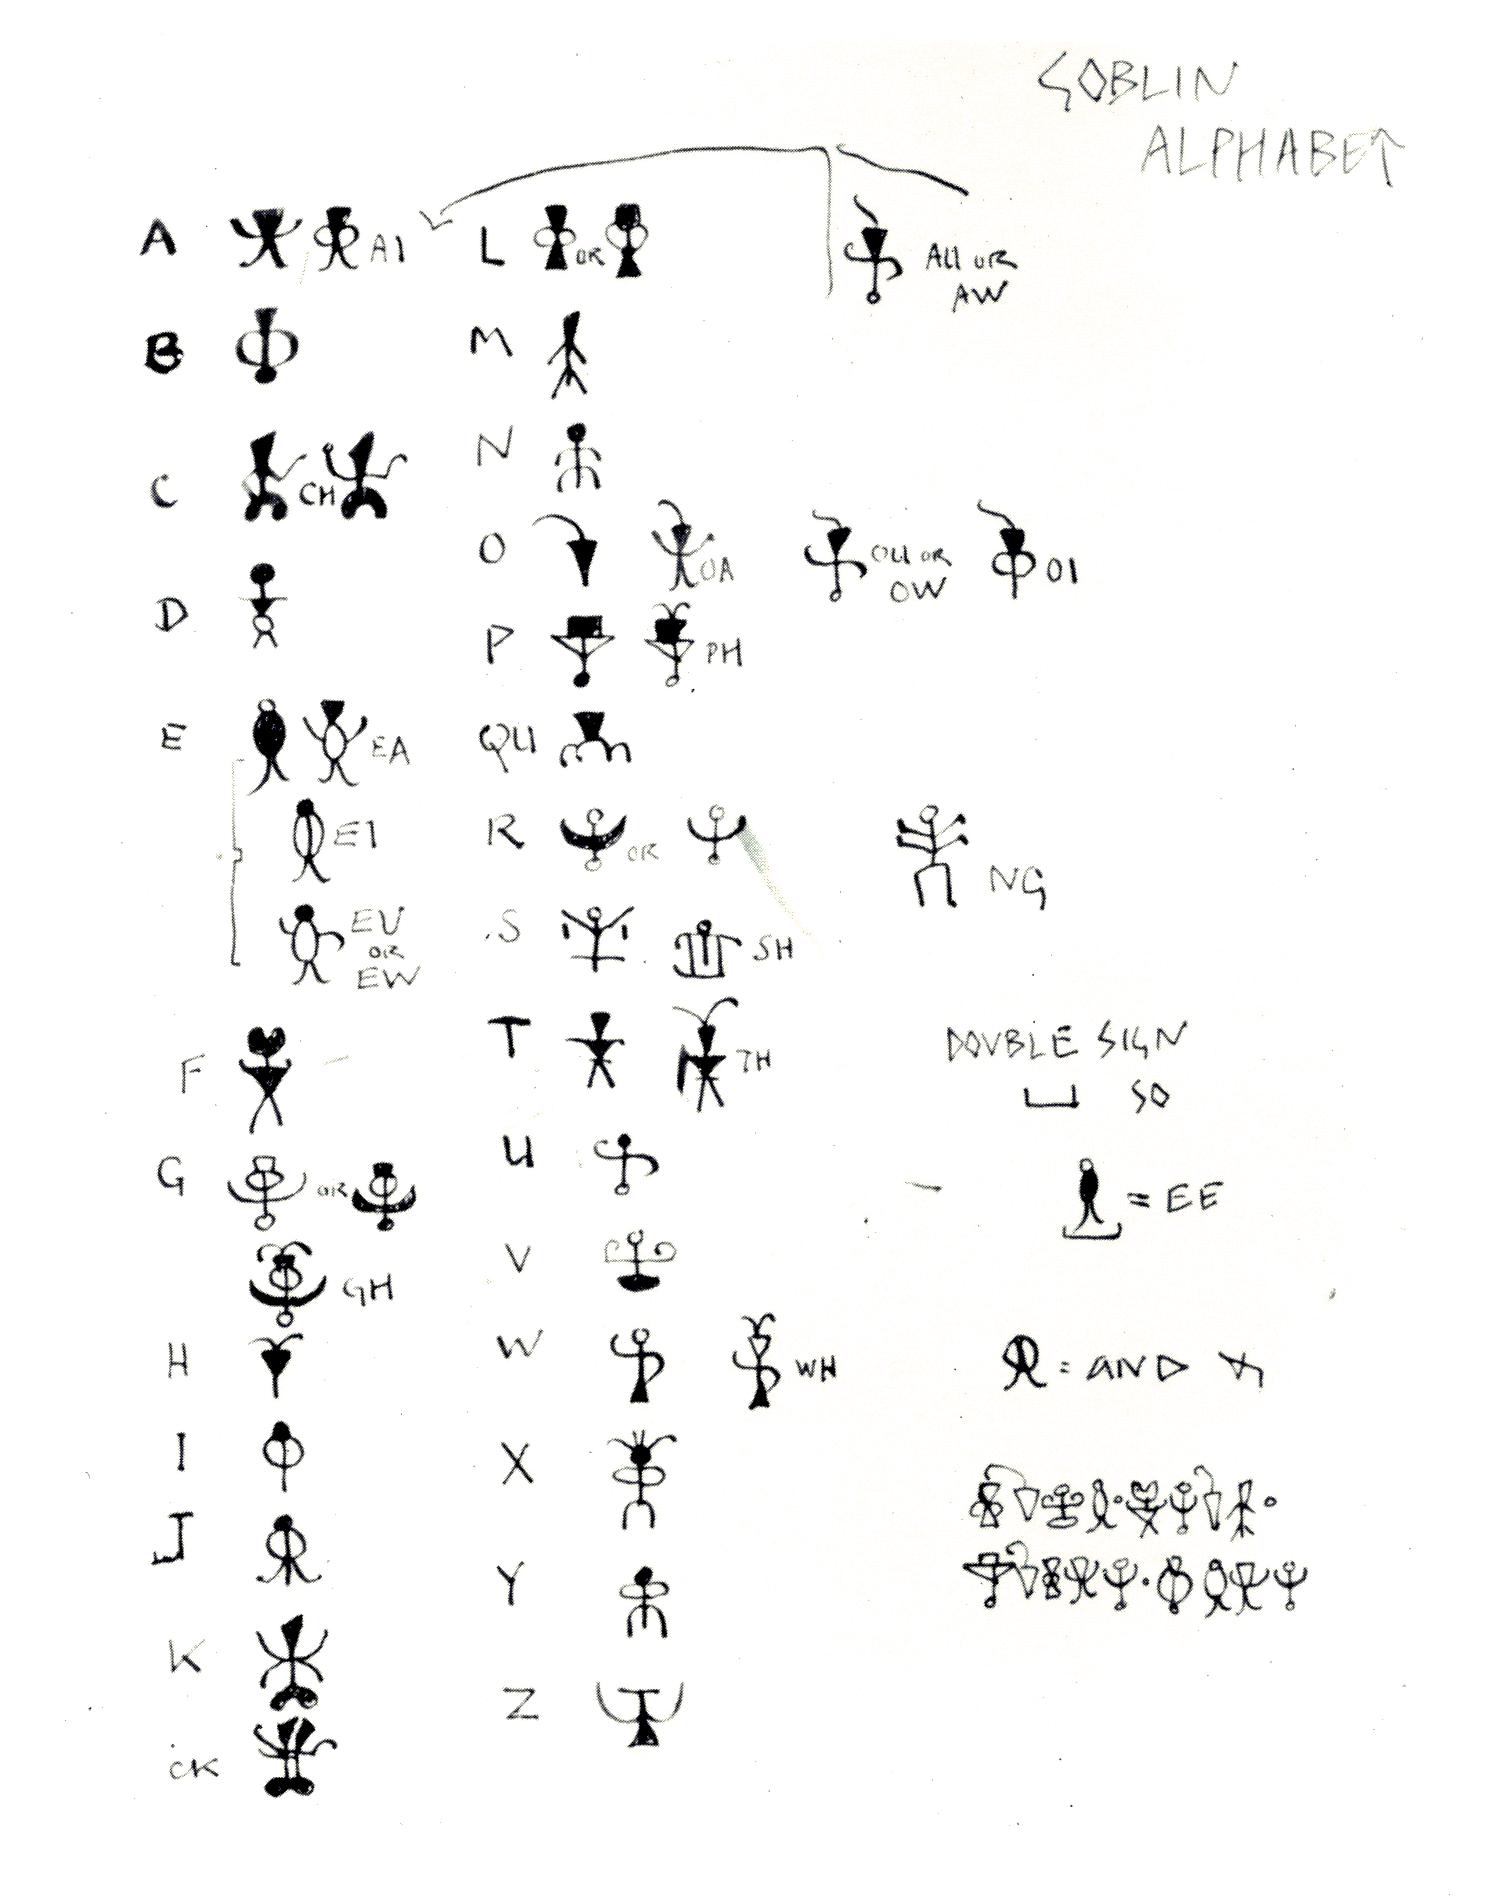 GOBLIN
ALPHABET
A AI
L OR
AU OR
AW
B
M
C CH
N
D
O OA OU OR
OW OI
P PH
E EA
QU
EI
R OR
NG
EU
OR
EW
S SH
F
T TH
DOUBLE SIGN
SO
G OR
U
= EE
GH
V
H
W WH
= AND
I
X
J
Y
K
Z
CK